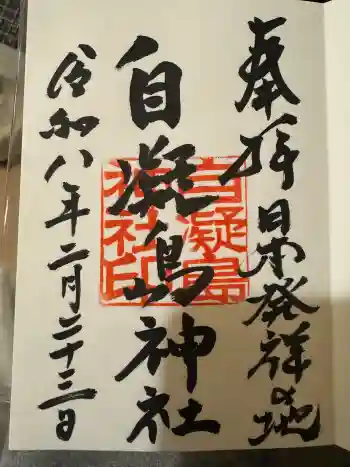 奉拝 日本発祥の地
自凝島神社
自凝島神社印
令和八年二月二十三日